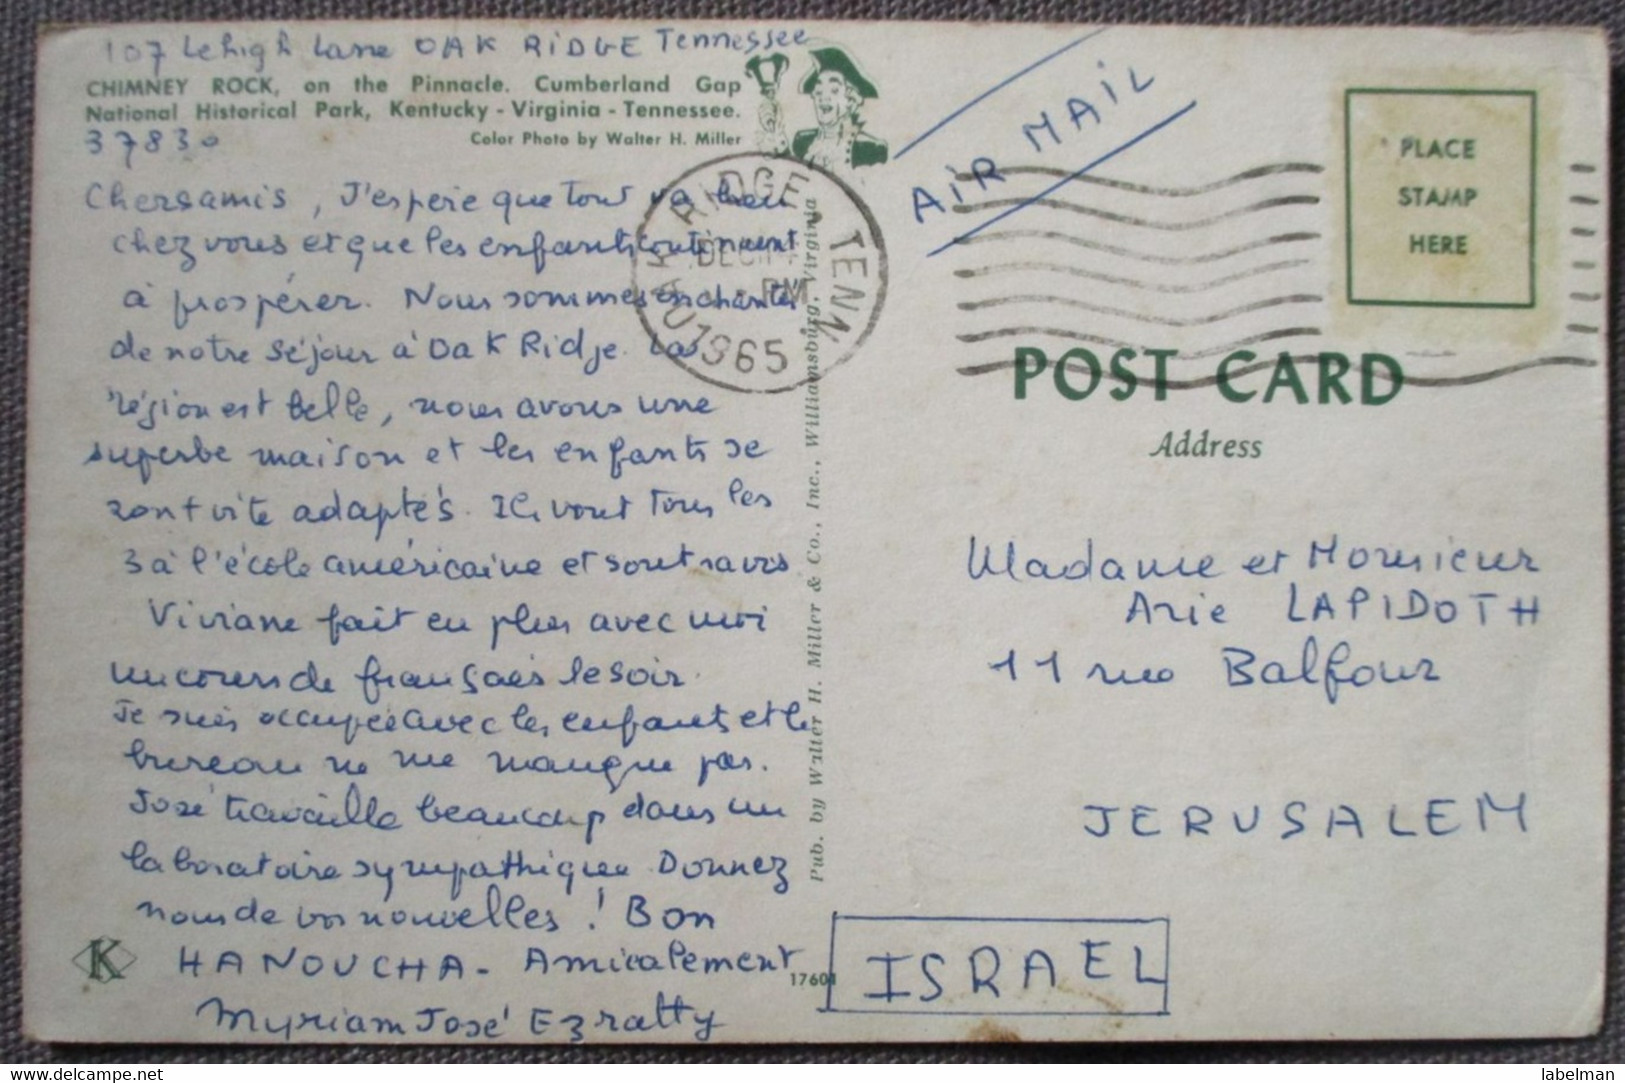 107 Lehigh Lane OAK RIDGE Tennessee
CHIMNEY ROCK, on the Pinnacle. Cumberland Gap
National Historical Park, Kentucky - Virginia - Tennessee.
37830
Color Photo by Walter H. Miller
Chers amis, J'espère que tout va bien
chez vous et que les enfants continuent
à prospérer. Nous sommes enchantés
de notre séjour à Oak Ridge. La
région est belle, nous avons une
superbe maison et les enfants se
sont vite adaptés. Ils vont tous les
3 à l'école américaine et sont ravis
Viviane fait en plus avec moi
un cours de français le soir.
Je suis occupée avec les enfants et le
bureau ne me manque pas.
José travaille beaucoup dans un
laboratoire sympathique. Donnez
nous de vos nouvelles! Bon
HANOUCHA - Amicalement
Myriam José Ezratty
K
17601
Pub. by Walter H. Miller & Co., Inc., Williamsburg, Virginia
OAK RIDGE TENN
DEC
PM
1965
AIR MAIL
PLACE
STAMP
HERE
POST CARD
Address
Madame et Monsieur
Arie LAPIDOTH
11 rue Balfour
JERUSALEM
ISRAEL
labelman
https://www.delcampe.net